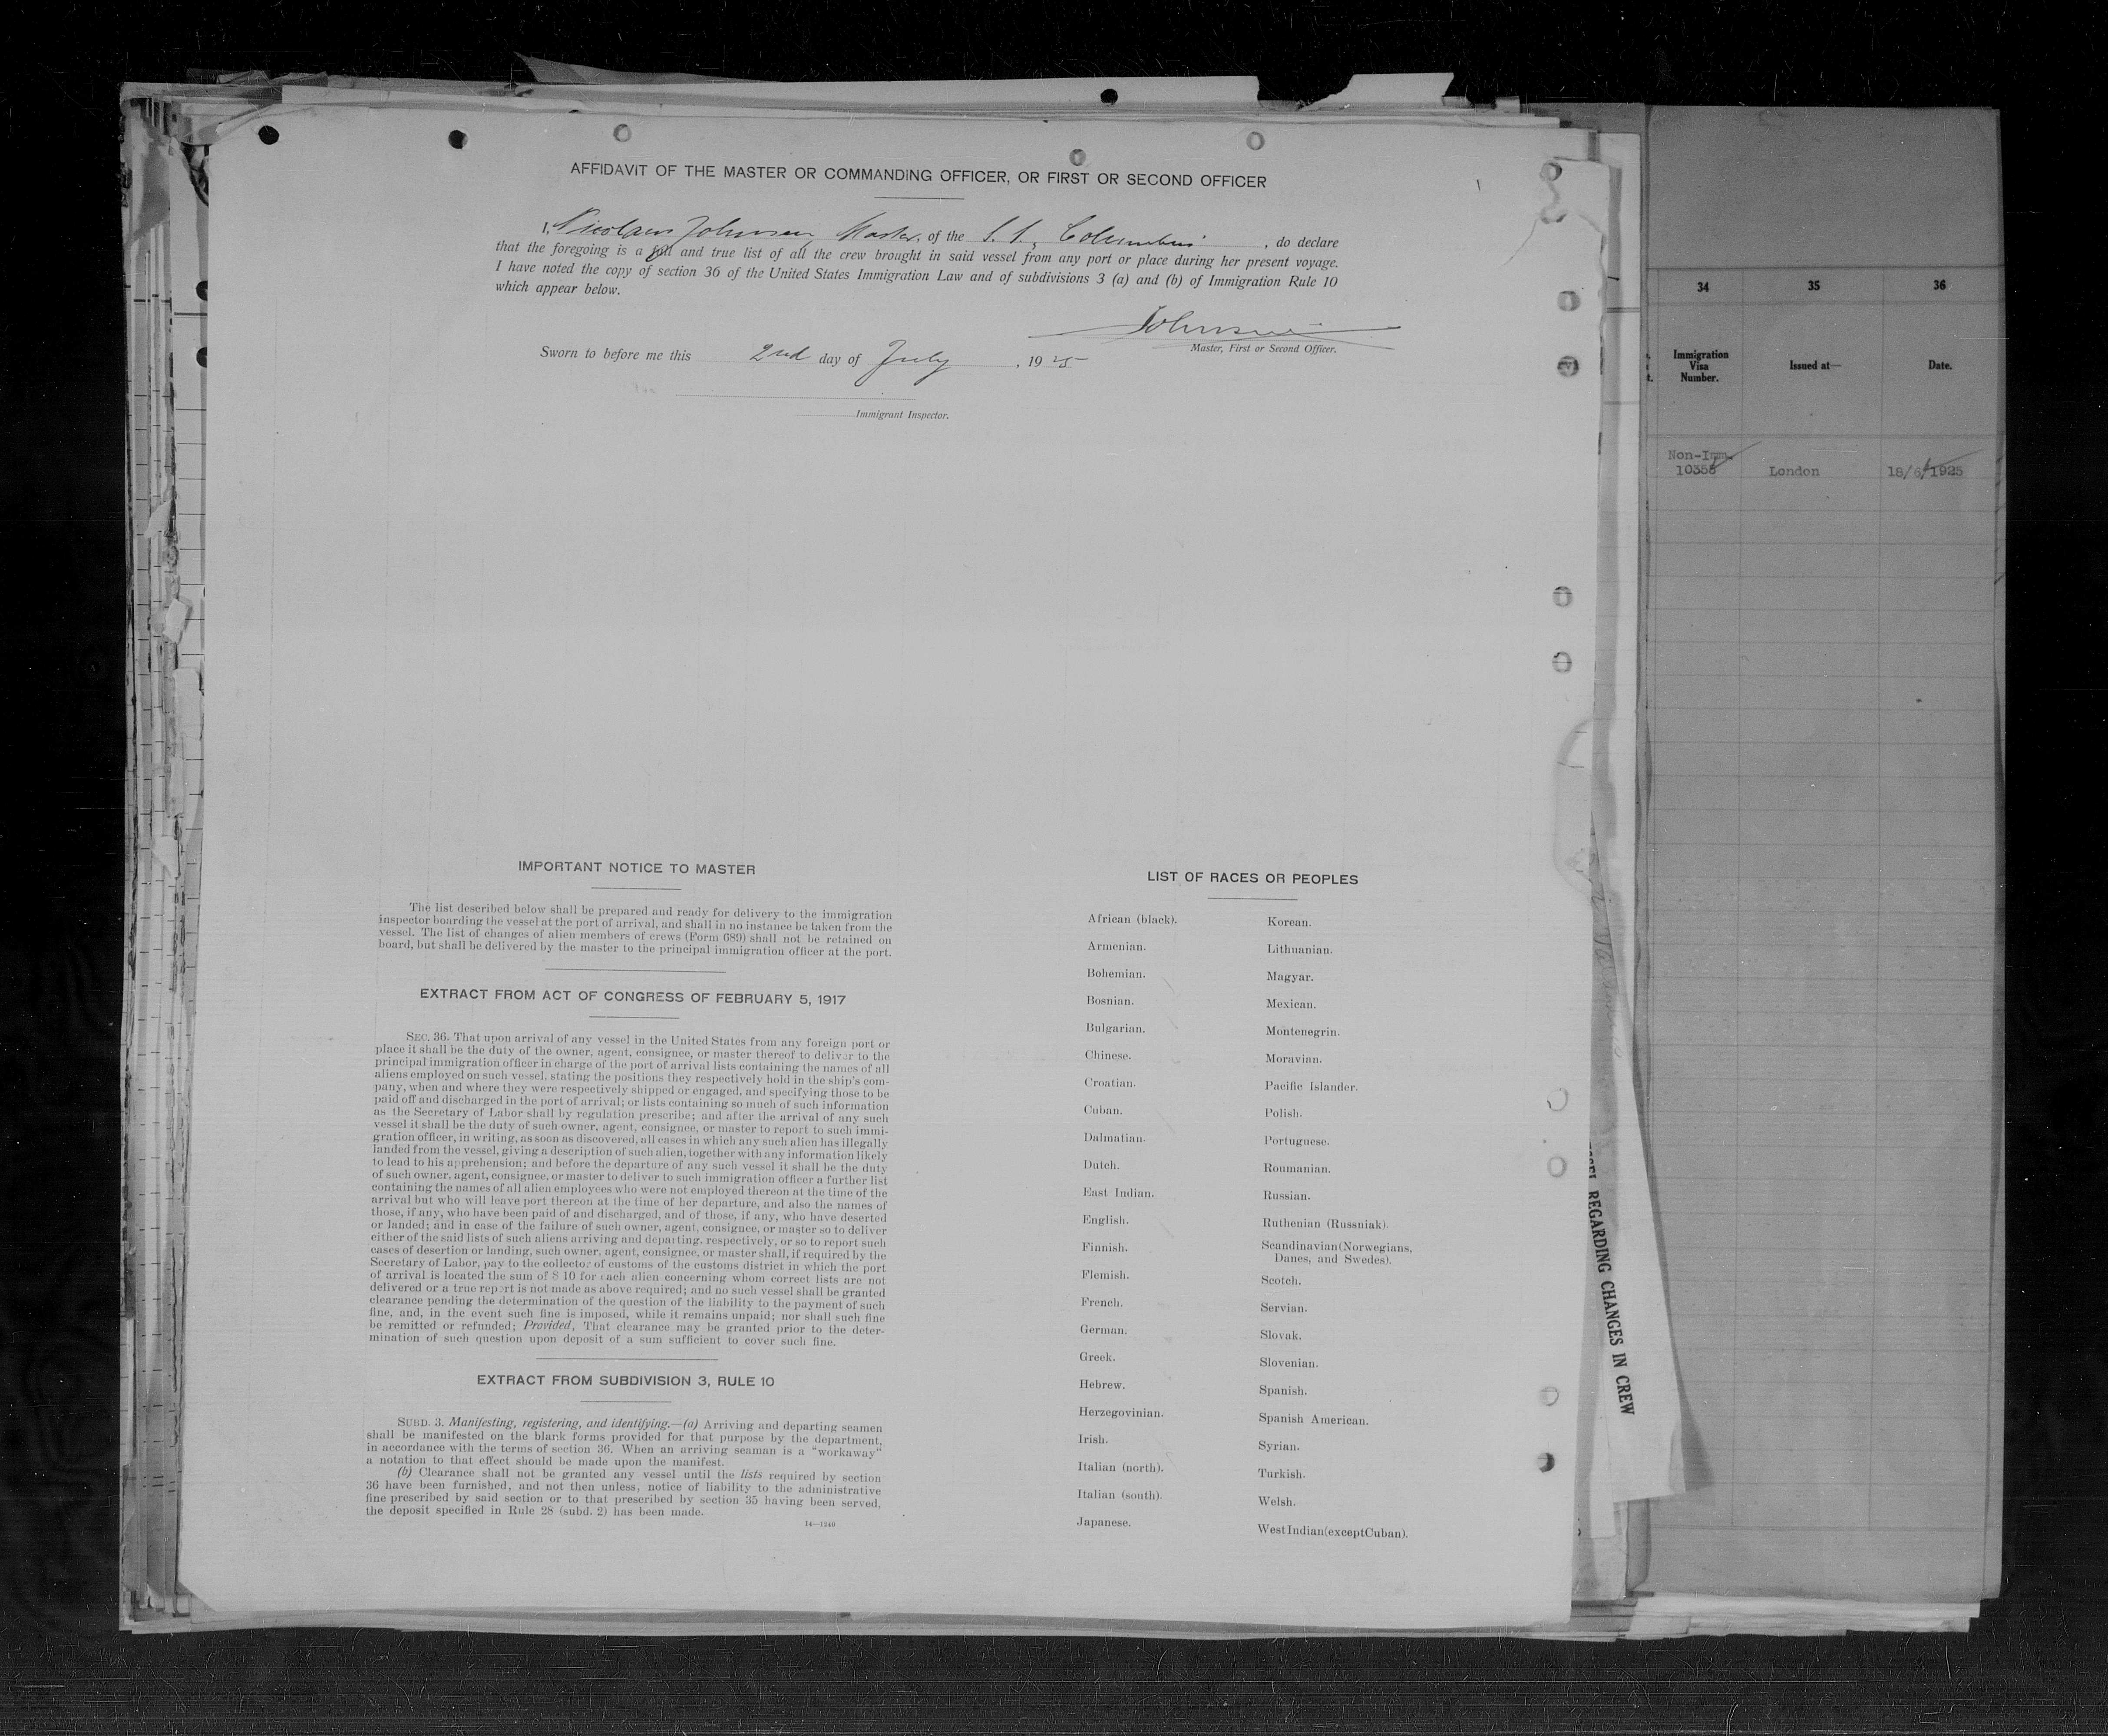 AFFIDAVIT OF THE MASTER OR COMMANDING OFFICER, OR FIRST OR SECOND OFFICER
I, Nicolaus Johnsen, Master, of the S. S. Columbus, do declare
that the foregoing is a full and true list of all the crew brought in said vessel from any port or place during her present voyage.
I have noted the copy of section 36 of the United States Immigration Law and of subdivisions 3 (a) and (b) of Immigration Rule 10
which appear below.
Johnsen
Master, First or Second Officer.
Sworn to before me this 2nd day of July, 1925
Immigrant Inspector.
IMPORTANT NOTICE TO MASTER
The list described below shall be prepared and ready for delivery to the immigration
inspector boarding the vessel at the port of arrival, and shall in no instance be taken from the
vessel. The list of changes of alien members of crews (Form 689) shall not be retained on
board, but shall be delivered by the master to the principal immigration officer at the port.
EXTRACT FROM ACT OF CONGRESS OF FEBRUARY 5, 1917
SEC. 36. That upon arrival of any vessel in the United States from any foreign port or
place it shall be the duty of the owner, agent, consignee, or master thereof to deliver to the
principal immigration officer in charge of the port of arrival lists containing the names of all
aliens employed on such vessel, stating the positions they respectively hold in the ship's com-
pany, when and where they were respectively shipped or engaged, and specifying those to be
paid off and discharged in the port of arrival; or lists containing so much of such information
as the Secretary of Labor shall by regulation prescribe; and after the arrival of any such
vessel it shall be the duty of such owner, agent, consignee, or master to report to such immi-
gration officer, in writing, as soon as discovered, all cases in which any such alien has illegally
landed from the vessel, giving a description of such alien, together with any information likely
to lead to his apprehension; and before the departure of any such vessel it shall be the duty
of such owner, agent, consignee, or master to deliver to such immigration officer a further list
containing the names of all alien employees who were not employed thereon at the time of the
arrival but who will leave port thereon at the time of her departure, and also the names of
those, if any, who have been paid of and discharged, and of those, if any, who have deserted
or landed; and in case of the failure of such owner, agent, consignee, or master so to deliver
either of the said lists of such aliens arriving and departing, respectively, or so to report such
cases of desertion or landing, such owner, agent, consignee, or master shall, if required by the
Secretary of Labor, pay to the collector of customs of the customs district in which the port
of arrival is located the sum of $ 10 for each alien concerning whom correct lists are not
delivered or a true report is not made as above required; and no such vessel shall be granted
clearance pending the determination of the question of the liability to the payment of such
fine, and, in the event such fine is imposed, while it remains unpaid; nor shall such fine
be remitted or refunded; Provided, That clearance may be granted prior to the deter-
mination of such question upon deposit of a sum sufficient to cover such fine.
EXTRACT FROM SUBDIVISION 3, RULE 10
SUBD. 3. Manifesting, registering, and identifying.—(a) Arriving and departing seamen
shall be manifested on the blank forms provided for that purpose by the department,
in accordance with the terms of section 36. When an arriving seaman is a "workaway"
a notation to that effect should be made upon the manifest.
(b) Clearance shall not be granted any vessel until the lists required by section
36 have been furnished, and not then unless, notice of liability to the administrative
fine prescribed by said section or to that prescribed by section 35 having been served,
the deposit specified in Rule 28 (subd. 2) has been made.
14—1240
LIST OF RACES OR PEOPLES
African (black).
Armenian.
Bohemian.
Bosnian.
Bulgarian.
Chinese.
Croatian.
Cuban.
Dalmatian.
Dutch.
East Indian.
English.
Finnish.
Flemish.
French.
German.
Greek.
Hebrew.
Herzegovinian.
Irish.
Italian (north).
Italian (south).
Japanese.
Korean.
Lithuanian.
Magyar.
Mexican.
Montenegrin.
Moravian.
Pacific Islander.
Polish.
Portuguese.
Roumanian.
Russian.
Ruthenian (Russniak).
Scandinavian (Norwegians,
Danes, and Swedes).
Scotch.
Servian.
Slovak.
Slovenian.
Spanish.
Spanish American.
Syrian.
Turkish.
Welsh.
West Indian (except Cuban).
REGARDING CHANGES IN CREW
34 35 36
Immigration
Visa
Number.
Issued at—
Date.
Non-Imm.
10358 London 18/6/1925